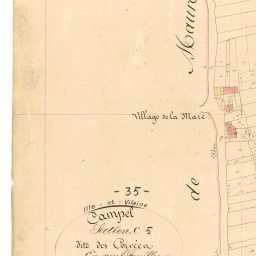 Maure
Village de la Mare
de
- 35 -
Ille - et - Vilaine
Campel
Section C 5
dite des Corvées